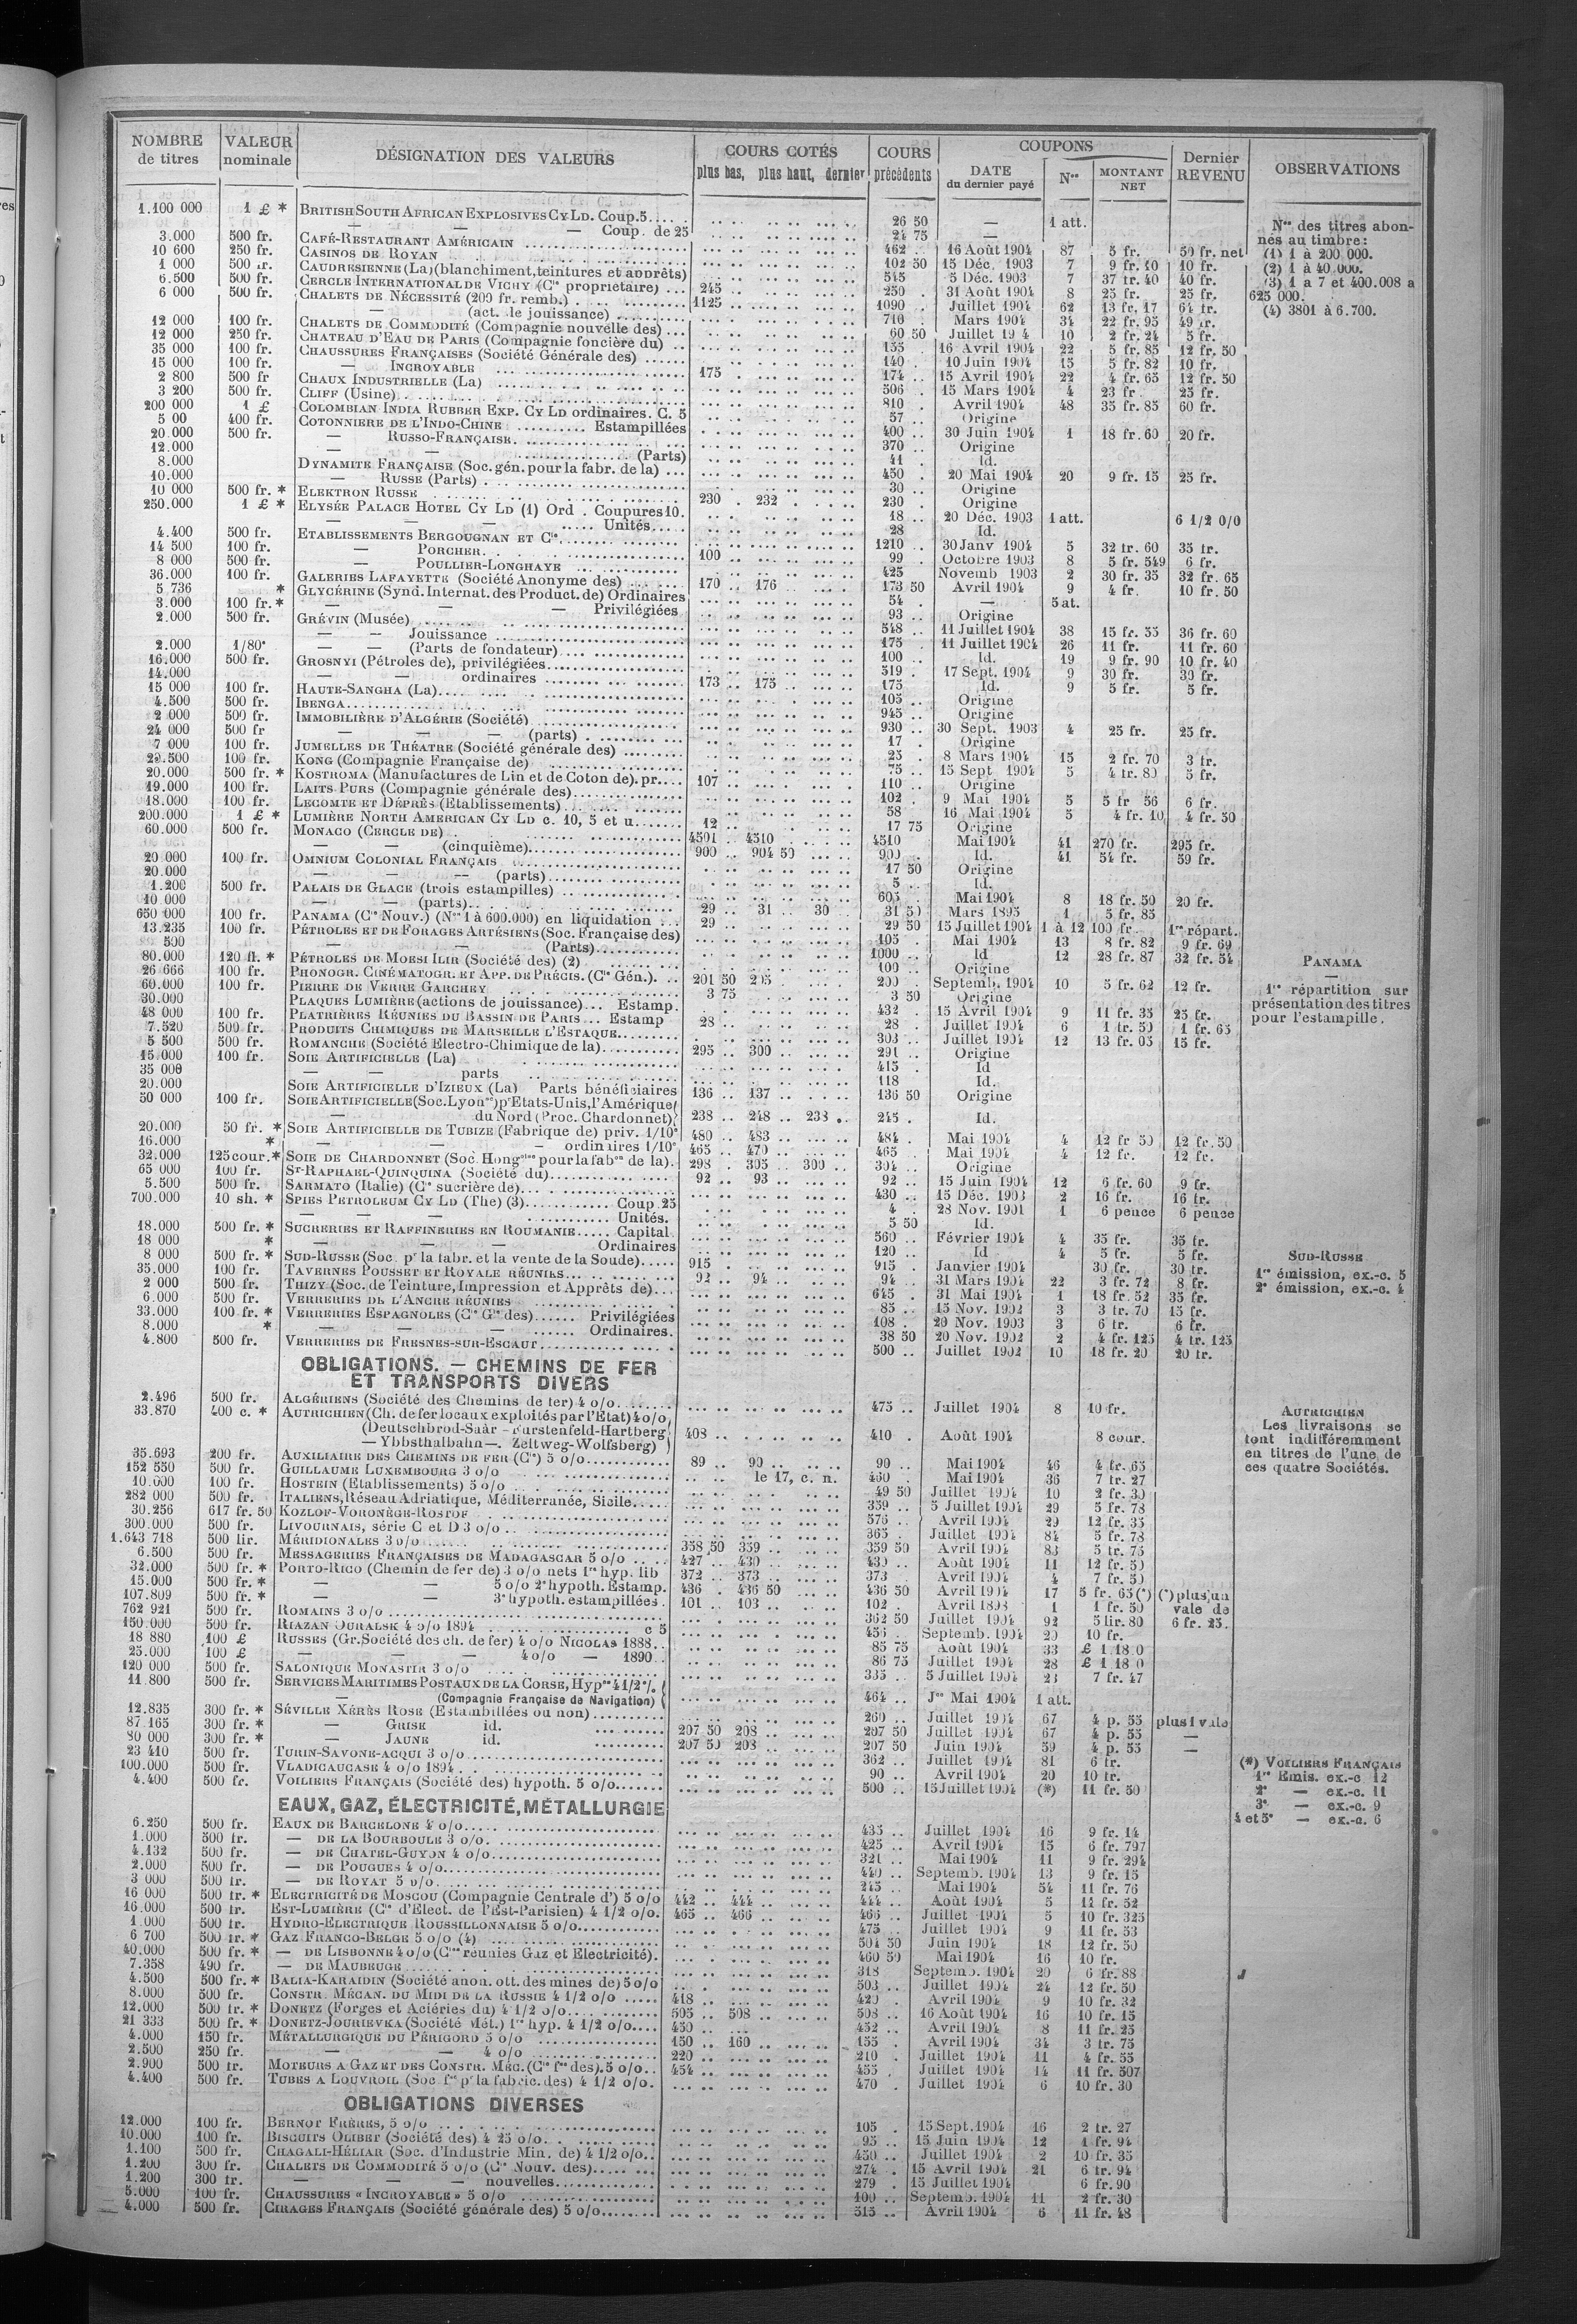 NOMBRE de titres | VALEUR nominale | DÉSIGNATION DES VALEURS | COURS COTÉS plus bas, plus haut, dernier | COURS précédents | COUPONS DATE du dernier payé | Nos | MONTANT NET | Dernier REVENU | OBSERVATIONS
1.100 000 1 £ * BRITISH SOUTH AFRICAN EXPLOSIVES CY LD. Coup. 5 26 50 — 1 att.
— — — Coup. de 25 24 75 —
3.000 500 fr. CAFÉ-RESTAURANT AMÉRICAIN 462 16 Août 1904 87 5 fr. 50 fr. net
10 600 250 fr. CASINOS DE ROYAN 102 50 15 Déc. 1903 7 9 fr. 10 10 fr.
1 000 500 fr. CAUDRESIENNE (La) (blanchiment, teintures et apprêts) 545 5 Déc. 1903 7 37 fr. 40 40 fr.
6.500 500 fr. CERCLE INTERNATIONAL DE VICHY (Cie propriétaire) 245 250 31 Août 1904 8 25 fr. 25 fr.
6 000 500 fr. CHALETS DE NÉCESSITÉ (200 fr. remb.) 1125 1090 Juillet 1904 62 13 fr. 17 64 fr.
— (act. de jouissance) 716 Mars 1904 34 22 fr. 95 49 fr.
12 000 100 fr. CHALETS DE COMMODITÉ (Compagnie nouvelle des) 60 50 Juillet 19 4 10 2 fr. 24 5 fr.
12 000 250 fr. CHATEAU D'EAU DE PARIS (Compagnie foncière du) 155 16 Avril 1904 22 5 fr. 85 12 fr. 50
35 000 100 fr. CHAUSSURES FRANÇAISES (Société Générale des) 140 10 Juin 1904 15 5 fr. 82 10 fr.
15 000 100 fr. — INCROYABLE 175 174 15 Avril 1904 22 4 fr. 65 12 fr. 50
2 800 500 fr CHAUX INDUSTRIELLE (La) 506 15 Mars 1904 4 23 fr 25 fr.
3 200 500 fr. CLIFF (Usine) 810 Avril 1904 48 35 fr. 85 60 fr.
200 000 1 £ COLOMBIAN INDIA RUBBER EXP. CY LD ordinaires. C. 5 57 Origine
5 00 400 fr. COTONNIERE DE L'INDO-CHINE Estampillées 400 30 Juin 1904 1 18 fr. 60 20 fr.
20.000 500 fr. — RUSSO-FRANÇAISE 370 Origine
12.000 — (Parts) 41 Id.
8.000 DYNAMITE FRANÇAISE (Soc. gén. pour la fabr. de la) 450 20 Mai 1904 20 9 fr. 15 25 fr.
10.000 — RUSSE (Parts) 30 Origine
10 000 500 fr. * ELEKTRON RUSSE 230 232 230 Origine
250.000 1 £ * ELYSÉE PALACE HOTEL CY LD (1) Ord. Coupures 10. 18 20 Déc. 1903 1 att. 6 1/2 0/0
— — — Unités 28 Id.
4.400 500 fr. ETABLISSEMENTS BERGOUGNAN ET Cie 1210 30 Janv 1904 5 32 fr. 60 35 fr.
14 500 100 fr. — PORCHER 100 99 Octobre 1903 8 5 fr. 549 6 fr.
8 000 500 fr. — POULLIER-LONGHAYE 425 Novemb 1903 2 30 fr. 35 32 fr. 65
36.000 100 fr. GALERIES LAFAYETTE (Société Anonyme des) 170 176 173 50 Avril 1904 9 4 fr. 10 fr. 50
5 736 * GLYCÉRINE (Synd. Internat. des Product. de) Ordinaires 54 — 5 at.
3.000 100 fr. * — — — Privilégiées 93 Origine
2.000 500 fr. GRÉVIN (Musée) 548 11 Juillet 1904 38 15 fr. 55 36 fr. 60
— — Jouissance 175 11 Juillet 1904 26 11 fr. 11 fr. 60
2.000 1/80e — — (Parts de fondateur) 100 Id. 19 9 fr. 90 10 fr. 40
16.000 500 fr. GROSNYI (Pétroles de), privilégiées 519 17 Sept. 1904 9 30 fr. 30 fr.
14.000 — — ordinaires 173 175 175 Id. 9 5 fr. 5 fr.
15 000 100 fr. HAUTE-SANGHA (La) 105 Origine
4.500 500 fr. IBENGA 945 Origine
2 000 500 fr. IMMOBILIÈRE D'ALGÉRIE (Société) 930 30 Sept. 1903 4 25 fr. 25 fr.
24 000 500 fr — — — (parts) 17 Origine
7 000 100 fr. JUMELLES DE THÉATRE (Société générale des) 25 8 Mars 1904 15 2 fr. 70 3 fr.
29.500 100 fr. KONG (Compagnie Française de) 75 15 Sept 1904 5 4 fr. 80 5 fr.
20.000 500 fr. * KOSTROMA (Manufactures de Lin et de Coton de). pr. 107 110 Origine
19.000 100 fr. LAITS PURS (Compagnie générale des) 102 9 Mai 1904 5 5 fr 56 6 fr.
18.000 100 fr. LECOMTE ET DÉPRÈS (Etablissements) 58 16 Mai 1904 5 4 fr. 10 4 fr. 50
200.000 1 £ * LUMIÈRE NORTH AMERICAN CY LD c. 10, 5 et u. 12 17 75 Origine
60.000 500 fr. MONACO (CERCLE DE) 4501 4510 4510 Mai 1904 41 270 fr. 295 fr.
— — (cinquième) 900 904 50 900 Id. 41 54 fr. 59 fr.
20 000 100 fr. OMNIUM COLONIAL FRANÇAIS 17 50 Origine
20.000 — — — (parts) 5 Id.
1.200 500 fr. PALAIS DE GLACE (trois estampilles) 605 Mai 1904 8 18 fr. 50 20 fr.
10 000 — — (parts) 29 31 30 31 50 Mars 1895 1 5 fr. 85
650 000 100 fr. PANAMA (Cie Nouv.) (Nos 1 à 600.000) en liquidation 29 29 50 15 Juillet 1904 1 à 12 100 fr. 1re répart.
13.235 100 fr. PÉTROLES ET DE FORAGES ARTÉSIENS (Soc. Française des) 105 Mai 1904 13 8 fr. 82 9 fr. 69
500 — — (Parts) 1000 Id 12 28 fr. 87 32 fr. 54
80.000 120 fl. * PÉTROLES DE MOESI ILIR (Société des) (2) 100 Origine
26 666 100 fr. PHONOGR. CINÉMATOGR. ET APP. DE PRÉCIS. (Cie Gén.). 201 50 205 200 Septemb. 1904 10 5 fr. 62 12 fr.
60.000 100 fr. PIERRE DE VERRE GARCHEY 3 75 3 50 Origine
30.000 PLAQUES LUMIÈRE (actions de jouissance) Estamp. 432 15 Avril 1904 9 11 fr. 35 25 fr.
48 000 100 fr. PLATRIÈRES RÉUNIES DU BASSIN DE PARIS Estamp 28 28 Juillet 1904 6 1 fr. 50 1 fr. 65
7.520 500 fr. PRODUITS CHIMIQUES DE MARSEILLE L'ESTAQUE 303 Juillet 1904 12 13 fr. 05 15 fr.
5 500 500 fr. ROMANCHE (Société Electro-Chimique de la) 295 300 291 Origine
15.000 100 fr. SOIE ARTIFICIELLE (La) 415 Id
35 000 — — parts 118 Id.
20.000 SOIE ARTIFICIELLE D'IZIEUX (La) Parts bénéficiaires 136 137 136 50 Origine
50 000 100 fr. SOIE ARTIFICIELLE (Soc. Lyonse) p'États-Unis, l'Amérique
— du Nord (Proc. Chardonnet) 238 248 238 245 Id.
20.000 50 fr. * SOIE ARTIFICIELLE DE TUBIZE (Fabrique de) priv. 1/10e 480 483 484 Mai 1904 4 12 fr 50 12 fr. 50
16.000 * — — — ordinaires 1/10e 465 470 465 Mai 1904 4 12 fr. 12 fr.
32.000 125 cour. * SOIE DE CHARDONNET (Soc. Hongroise pour la fabon de la). 298 305 300 304 Origine
65 000 100 fr. ST-RAPHAEL-QUINQUINA (Société du) 92 93 92 15 Juin 1904 12 6 fr. 60 9 fr.
5.500 500 fr. SARMATO (Italie) (Cie sucrière de) 430 15 Déc. 1903 2 16 fr. 16 fr.
700.000 10 sh. * SPIES PETROLEUM CY LD (The) (3) Coup. 25 4 28 Nov. 1901 1 6 pence 6 pence
— — — Unités. 5 50 Id.
18.000 500 fr. * SUCRERIES ET RAFFINERIES EN ROUMANIE Capital 560 Février 1904 4 35 fr. 35 fr.
18 000 * — — — Ordinaires 120 Id 4 5 fr. 5 fr.
8 000 500 fr. * SUD-RUSSE (Soc. pr la fabr. et la vente de la Soude) 915 915 Janvier 1904 30 fr. 30 fr.
35.000 100 fr. TAVERNES POUSSET ET ROYALE RÉUNIES 92 94 94 31 Mars 1904 22 3 fr. 72 8 fr.
2 000 500 fr. THIZY (Soc. de Teinture, Impression et Apprêts de) 645 31 Mai 1904 1 18 fr. 52 35 fr.
6.000 500 fr. VERRERIES DE L'ANCRE RÉUNIES 85 15 Nov. 1902 3 3 fr. 70 15 fr.
33.000 100 fr. * VERRERIES ESPAGNOLES (Cie Gle des) Privilégiées 108 20 Nov. 1903 3 6 fr. 6 fr.
8.000 * — — — Ordinaires. 38 50 20 Nov. 1902 2 4 fr. 125 4 fr. 125
4.800 500 fr. VERRERIES DE FRESNES-SUR-ESCAUT 500 Juillet 1902 10 18 fr. 20 20 fr.
OBLIGATIONS. — CHEMINS DE FER
ET TRANSPORTS DIVERS
2.496 500 fr. ALGÉRIENS (Société des Chemins de fer) 4 o/o 475 Juillet 1904 8 10 fr.
33.870 400 c. * AUTRICHIEN (Ch. de fer locaux exploités par l'Etat) 4 o/o
(Deutschbrod-Saar - Furstenfeld-Hartberg 408 410 Août 1904 8 cour.
— Ybbsthalbahn —. Zeltweg-Wolfsberg)
35.693 200 fr. AUXILIAIRE DES CHEMINS DE FER (Cie) 5 o/o 89 90 90 Mai 1904 46 4 fr. 65
152 550 500 fr. GUILLAUME LUXEMBOURG 3 o/o le 17, c. n. 460 Mai 1904 36 7 fr. 27
10.000 100 fr. HOSTEIN (Etablissements) 5 o/o 49 50 Juillet 1904 10 2 fr. 30
282 000 500 fr. ITALIENS, Réseau Adriatique, Méditerranée, Sicile 359 5 Juillet 1904 29 5 fr. 78
30.256 617 fr. 50 KOZLOF-VORONÈGE-ROSTOF 576 Avril 1904 29 12 fr. 35
300.000 500 fr. LIVOURNAIS, série C et D 3 o/o 365 Juillet 1904 84 5 fr. 78
1.643 718 500 lir. MÉRIDIONALES 3 o/o 358 50 359 359 50 Avril 1904 83 5 fr. 75
6.500 500 fr. MESSAGERIES FRANÇAISES DE MADAGASCAR 5 o/o 427 430 430 Août 1904 11 12 fr. 50
32.000 500 fr. * PORTO-RICO (Chemin de fer de) 3 o/o nets 1re hyp. lib 372 373 373 Avril 1904 4 7 fr. 50
15.000 500 fr. * — — 5 o/o 2e hypoth. Estamp. 436 436 50 436 50 Avril 1904 17 5 fr. 65 (*) (*) plus, un
107.809 500 fr. * — — 3e hypoth. estampillées 101 103 102 Avril 1898 1 1 fr. 50 vale de
762 921 500 fr. ROMAINS 3 o/o 362 50 Juillet 1904 92 5 lir. 80 6 fr. 25.
150.000 500 fr. RIAZAN OURALSK 4 o/o 1894 c 5 456 Septemb. 1904 20 10 fr.
18 880 100 £ RUSSES (Gr. Société des ch. de fer) 4 o/o NICOLAS 1888 85 75 Août 1904 33 £ 1.18 0
25.000 100 £ — — — 4 o/o — 1890 86 75 Juillet 1904 28 £ 1 18 0
120 000 500 fr. SALONIQUE MONASTIR 3 o/o 335 5 Juillet 1904 23 7 fr. 47
11.800 500 fr. SERVICES MARITIMES POSTAUX DE LA CORSE, Hypre 4 1/2 %
— (Compagnie Française de Navigation) 464 Jce Mai 1904 1 att.
12.835 300 fr. * SÉVILLE XÉRÈS ROSE (Estambillées ou non) 260 Juillet 1904 67 4 p. 55 plus 1 vale
87.165 300 fr. * — GRISE id. 207 50 208 207 50 Juillet 1904 67 4 p. 55 —
80 000 300 fr. * — JAUNE id. 207 50 208 207 50 Juin 1904 59 4 p. 55 —
23 410 500 fr. TURIN-SAVONE-ACQUI 3 o/o 362 Juillet 1904 81 6 fr.
100.000 500 fr. VLADICAUCASE 4 o/o 1894 90 Avril 1904 20 10 fr.
4.400 500 fr. VOILIERS FRANÇAIS (Société des) hypoth. 5 o/o 500 15 Juillet 1904 (*) 11 fr. 50
EAUX, GAZ, ÉLECTRICITÉ, MÉTALLURGIE
6.250 500 fr. EAUX DE BARCELONE 4 o/o 435 Juillet 1904 16 9 fr. 14
1.000 500 fr. — DE LA BOURBOULE 3 o/o 425 Avril 1904 15 6 fr. 797
4.132 500 fr. — DE CHATEL-GUYON 4 o/o 321 Mai 1904 11 9 fr. 294
2.000 500 fr. — DE POUGUES 4 o/o 440 Septemb. 1904 13 9 fr. 15
3 000 500 fr. — DE ROYAT 5 o/o 245 Mai 1904 54 11 fr. 76
16 000 500 fr. * ELECTRICITÉ DE MOSCOU (Compagnie Centrale d') 5 o/o 442 444 444 Août 1904 5 11 fr. 52
16.000 500 fr. EST-LUMIÈRE (Cie d'Elect. de l'Est-Parisien) 4 1/2 o/o. 465 466 466 Juillet 1904 5 10 fr. 325
1.000 500 fr. HYDRO-ELECTRIQUE ROUSSILLONNAISE 5 o/o 475 Juillet 1904 9 11 fr. 53
6 700 500 fr. * GAZ FRANCO-BELGE 5 o/o (4) 501 50 Juin 1904 18 12 fr. 50
40.000 500 fr. * — DE LISBONNE 4 o/o (Cies réunies Gaz et Electricité). 460 50 Mai 1904 16 10 fr.
7.358 490 fr. — DE MAUBEUGE 318 Septemb. 1904 20 6 fr. 88
4.500 500 fr. * BALIA-KARAIDIN (Société anon. ott. des mines de) 5 o/o 503 Juillet 1904 24 12 fr. 50
8.000 500 fr. CONSTR. MÉCAN. DU MIDI DE LA RUSSIE 4 1/2 o/o 418 420 Avril 1904 9 10 fr. 32
12.000 500 fr. * DONETZ (Forges et Aciéries du) 4 1/2 o/o 505 508 508 16 Août 1904 16 10 fr. 15
21 333 500 fr. * DONETZ-JOURIEVKA (Société Mét.) 1re hyp. 4 1/2 o/o 450 452 Avril 1904 8 11 fr. 25
4.000 150 fr. MÉTALLURGIQUE DU PÉRIGORD 5 o/o 150 160 155 Avril 1904 34 3 fr. 75
2.500 250 fr. — — 4 o/o 220 210 Juillet 1904 11 4 fr. 55
2.900 500 fr. MOTEURS A GAZ ET DES CONSTR. MÉC. (Cie fse des). 5 o/o 454 455 Juillet 1904 14 11 fr. 507
4.400 500 fr. TUBES A LOUVROIL (Soc fse pr la fabric. des) 4 1/2 o/o. 470 Juillet 1904 6 10 fr. 30
OBLIGATIONS DIVERSES
12.000 100 fr. BERNOT FRÈRES, 5 o/o 105 15 Sept. 1904 16 2 fr. 27
10.000 100 fr. BISCUITS OLIBET (Société des) 4 25 o/o 95 15 Juin 1904 12 1 fr. 94
1.100 500 fr. CHAGALI-HÉLIAR (Soc. d'Industrie Min. de) 4 1/2 o/o 450 Juillet 1904 2 10 fr. 35
1.200 300 fr. CHALETS DE COMMODITÉ 5 o/o (Cie Nouv. des) 274 15 Avril 1904 21 6 fr. 94
1.200 300 fr. — — — nouvelles 279 15 Juillet 1904 6 fr. 90
5.000 100 fr. CHAUSSURES « INCROYABLE » 5 o/o 100 Septemb. 1904 11 2 fr. 30
4.000 500 fr. CIRAGES FRANÇAIS (Société générale des) 5 o/o 515 Avril 1904 6 11 fr. 48
Nos des titres abonnés au timbre:
(1) 1 à 200 000.
(2) 1 à 40.000.
(3) 1 a 7 et 400.008 a
625 000.
(4) 3801 à 6.700.
PANAMA
—
1re répartition sur
présentation des titres
pour l'estampille.
SUD-RUSSE
1re émission, ex.-c. 5
2e émission, ex.-c. 4
AUTRICHIEN
Les livraisons se
font indifféremment
en titres de l'une de
ces quatre Sociétés.
(*) VOILIERS FRANÇAIS
1re Emis. ex.-c 12
2e — ex.-c. 11
3e — ex.-c. 9
4 et 5e — ex.-c. 6